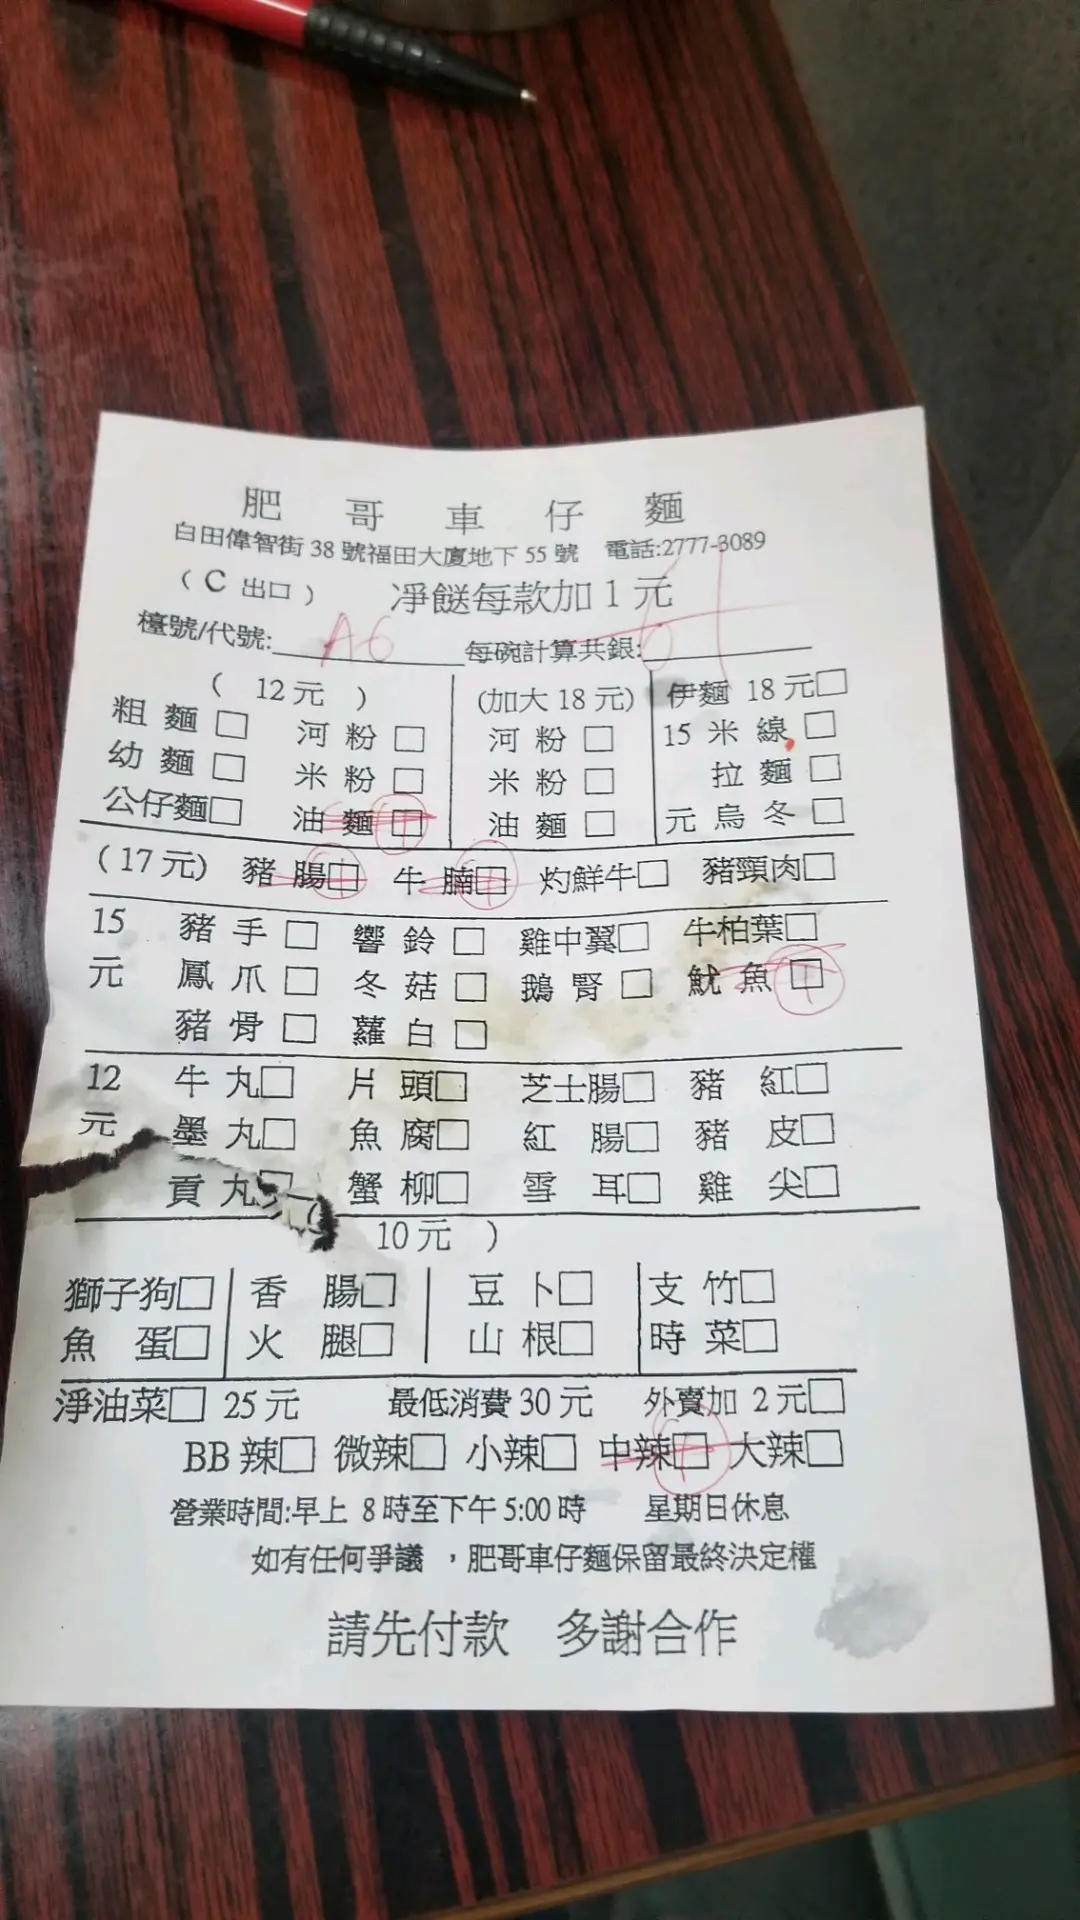 肥哥車仔麵
白田偉智街 38 號福田大廈地下 55 號 電話:2777-3089
( C 出口 ) 凈餸每款加 1 元
檯號/代號: A6 每碗計算共銀: 61
( 12 元 ) (加大 18 元) 伊麵 18 元□
粗麵□ 河粉□ 河粉□ 15 米線□
幼麵□ 米粉□ 米粉□ 拉麵□
公仔麵□ 油麵□ 油麵□ 元 烏冬□
(17 元) 豬腸□ 牛腩□ 灼鮮牛□ 豬頸肉□
15 豬手□ 響鈴□ 雞中翼□ 牛柏葉□
元 鳳爪□ 冬菇□ 鵝腎□ 魷魚□
豬骨□ 蘿白□
12 牛丸□ 片頭□ 芝士腸□ 豬紅□
元 墨丸□ 魚腐□ 紅腸□ 豬皮□
貢丸□ 蟹柳□ 雪耳□ 雞尖□
( 10 元 )
獅子狗□ 香腸□ 豆卜□ 支竹□
魚蛋□ 火腿□ 山根□ 時菜□
淨油菜□ 25 元 最低消費 30 元 外賣加 2 元□
BB 辣□ 微辣□ 小辣□ 中辣□ 大辣□
營業時間:早上 8 時至下午 5:00 時 星期日休息
如有任何爭議，肥哥車仔麵保留最終決定權
請先付款 多謝合作